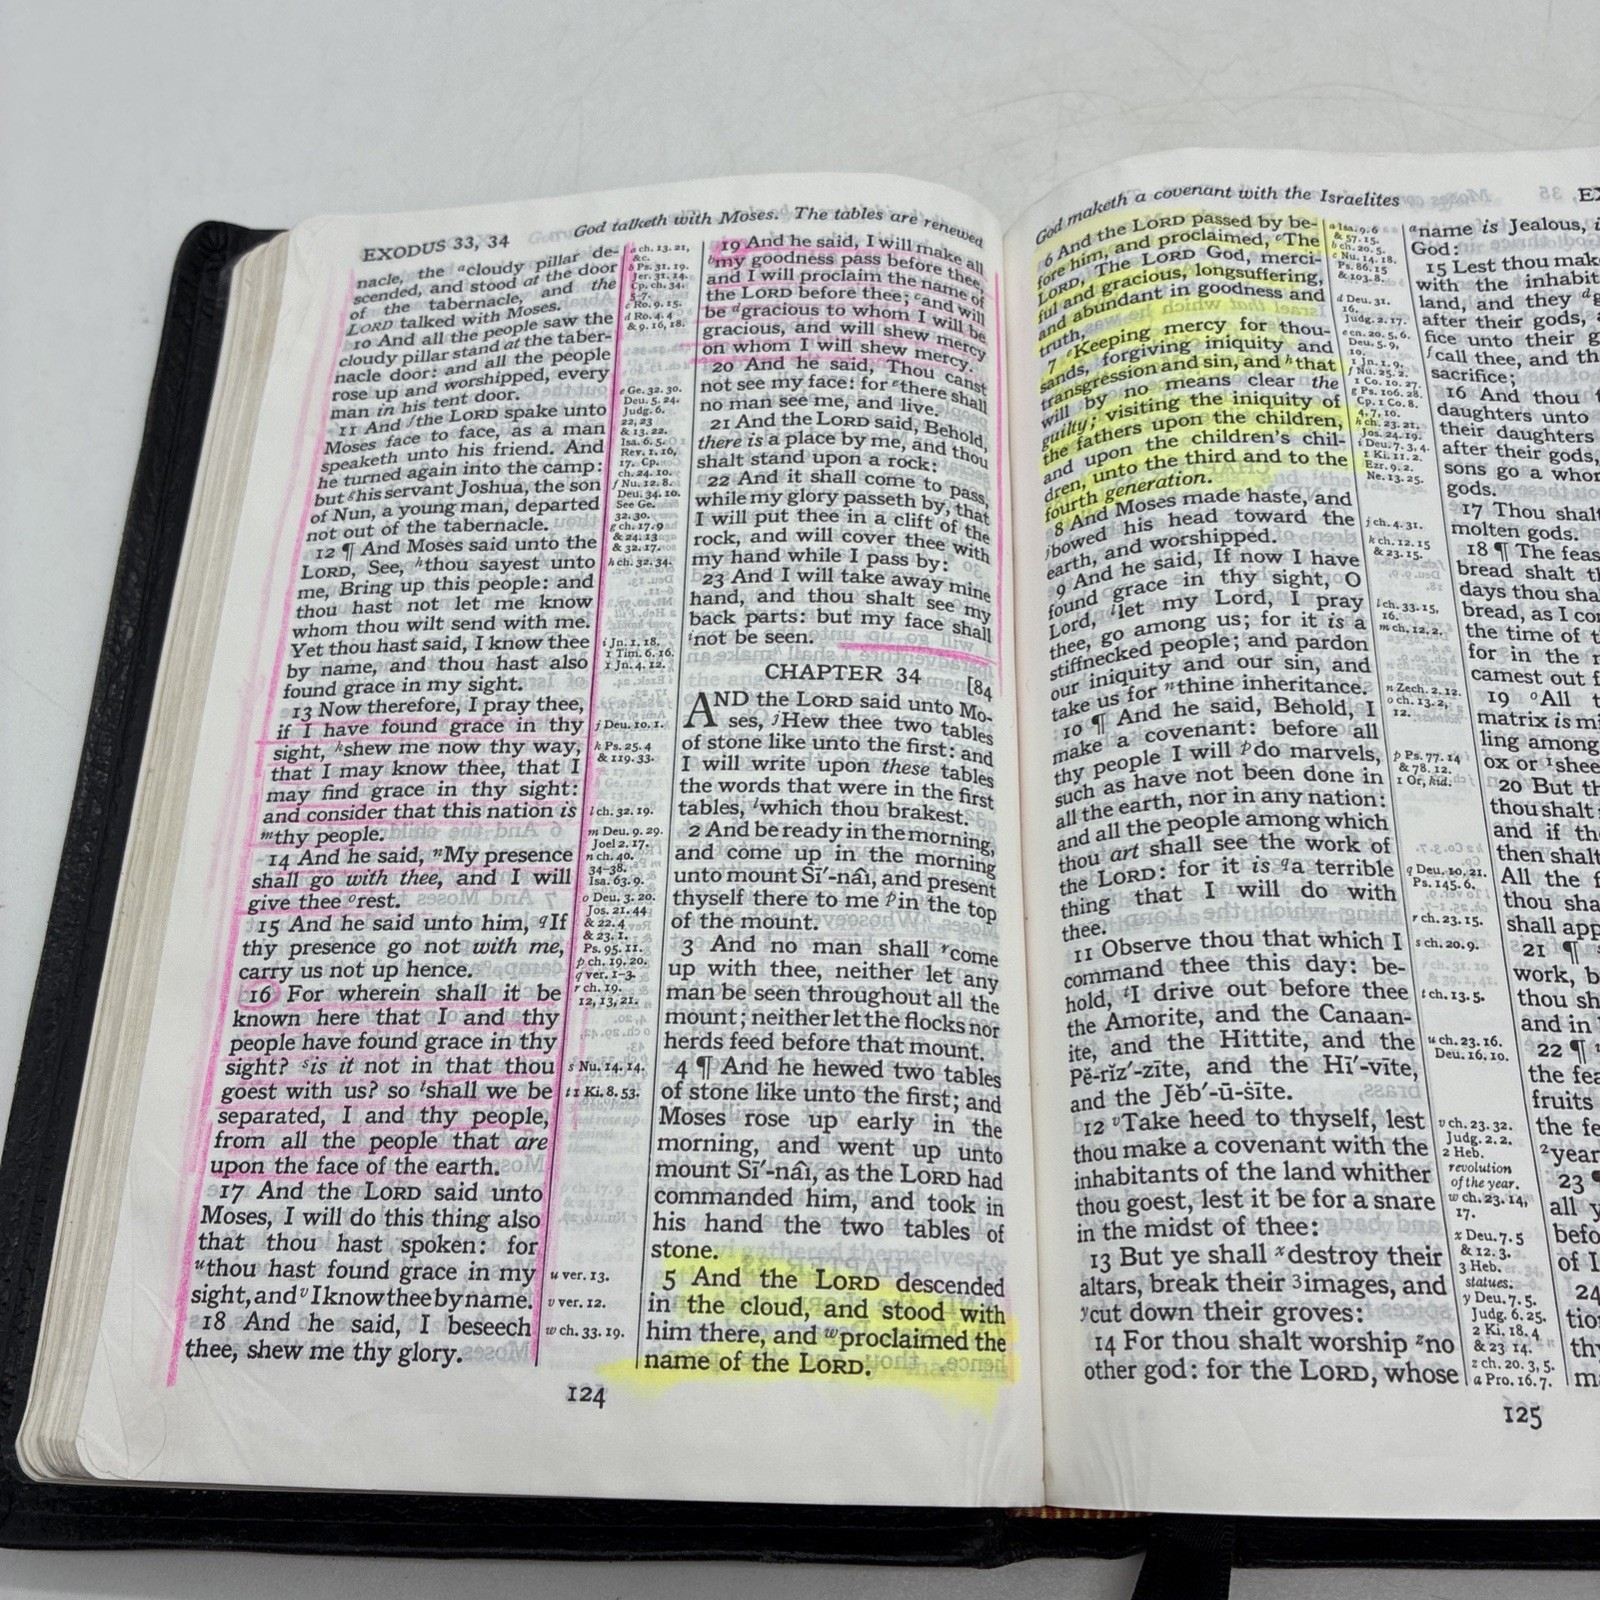 EXODUS 33, 34
God talketh with Moses. The tables are renewed
nacle, the ᵃcloudy pillar de-
scended, and stood at the door
of the tabernacle, and the
LORD talked with Moses.
10 And all the people saw the
cloudy pillar stand at the taber-
nacle door: and all the people
rose up and worshipped, every
man in his tent door.
11 And ᶠthe LORD spake unto
Moses face to face, as a man
speaketh unto his friend. And
he turned again into the camp:
but ᵍhis servant Joshua, the son
of Nun, a young man, departed
not out of the tabernacle.
12 ¶ And Moses said unto the
LORD, See, ʰthou sayest unto
me, Bring up this people: and
thou hast not let me know
whom thou wilt send with me.
Yet thou hast said, I know thee
by name, and thou hast also
found grace in my sight.
13 Now therefore, I pray thee,
if I have found grace in thy
sight, ᵏshew me now thy way,
that I may know thee, that I
may find grace in thy sight:
and consider that this nation is
ᵐthy people.
14 And he said, ⁿMy presence
shall go with thee, and I will
give thee ᵒrest.
15 And he said unto him, qIf
thy presence go not with me,
carry us not up hence.
16 For wherein shall it be
known here that I and thy
people have found grace in thy
sight? ˢis it not in that thou
goest with us? so ᵗshall we be
separated, I and thy people,
from all the people that are
upon the face of the earth.
17 And the LORD said unto
Moses, I will do this thing also
that thou hast spoken: for
ᵘthou hast found grace in my
sight, and ᵛI know thee by name.
18 And he said, I beseech
thee, shew me thy glory.
a ch. 13. 21,
&c.
b Ps. 31. 19.
Jer. 31. 14.
Cp. ch. 34.
5-7.
c Ro. 9. 15.
d Ro. 4. 4
& 9. 16, 18.
e Ge. 32. 30.
Deu. 5. 24.
Judg. 6.
22, 23
& 13. 22.
Isa. 6. 5.
Rev. 1. 16,
17. Cp.
ch. 24. 10.
f Nu. 12. 8.
Deu. 34. 10.
See Ge.
32. 30.
g ch. 17. 9
& 24. 13
& 32. 17.
h ch. 32. 34.
i Jn. 1. 18.
1 Tim. 6. 16.
1 Jn. 4. 12.
j Deu. 10. 1.
k Ps. 25. 4
& 119. 33.
l ch. 32. 19.
m Deu. 9. 29.
Joel 2. 17.
n ch. 40.
34-38.
Isa. 63. 9.
o Deu. 3. 20.
Jos. 21. 44
& 22. 4
& 23. 1.
Ps. 95. 11.
p ch. 19. 20.
q ver. 1-3.
r ch. 19.
12, 13, 21.
s Nu. 14. 14.
t 1 Ki. 8. 53.
u ver. 13.
v ver. 12.
w ch. 33. 19.
19 And he said, I will make all
ᵇmy goodness pass before thee,
and I will proclaim the name of
the LORD before thee; ᶜand will
be ᵈgracious to whom I will be
gracious, and will shew mercy
on whom I will shew mercy.
20 And he said, Thou canst
not see my face: for ᵉthere shall
no man see me, and live.
21 And the LORD said, Behold,
there is a place by me, and thou
shalt stand upon a rock:
22 And it shall come to pass,
while my glory passeth by, that
I will put thee in a clift of the
rock, and will cover thee with
my hand while I pass by:
23 And I will take away mine
hand, and thou shalt see my
back parts: but my face shall
ⁱnot be seen.
CHAPTER 34 [84
AND the LORD said unto Mo-
ses, ʲHew thee two tables
of stone like unto the first: and
I will write upon these tables
the words that were in the first
tables, ˡwhich thou brakest.
2 And be ready in the morning,
and come up in the morning
unto mount Sī′-nâi, and present
thyself there to me ᵖin the top
of the mount.
3 And no man shall ʳcome
up with thee, neither let any
man be seen throughout all the
mount; neither let the flocks nor
herds feed before that mount.
4 ¶ And he hewed two tables
of stone like unto the first; and
Moses rose up early in the
morning, and went up unto
mount Sī′-nâi, as the LORD had
commanded him, and took in
his hand the two tables of
stone.
5 And the LORD descended
in the cloud, and stood with
him there, and ʷproclaimed the
name of the LORD.
124
God maketh a covenant with the Israelites
6 And the LORD passed by be-
fore him, and proclaimed, ᶜThe
LORD, The LORD God, merci-
ful and gracious, longsuffering,
and abundant in goodness and
truth,
7 ᵉKeeping mercy for thou-
sands, forgiving iniquity and
transgression and sin, and ʰthat
will by no means clear the
guilty; visiting the iniquity of
the fathers upon the children,
and upon the children's chil-
dren, unto the third and to the
fourth generation.
8 And Moses made haste, and
ʲbowed his head toward the
earth, and worshipped.
9 And he said, If now I have
found grace in thy sight, O
Lord, ˡlet my Lord, I pray
thee, go among us; for it is a
stiffnecked people; and pardon
our iniquity and our sin, and
take us for ⁿthine inheritance.
10 ¶ And he said, Behold, I
make a covenant: before all
thy people I will ᵖdo marvels,
such as have not been done in
all the earth, nor in any nation:
and all the people among which
thou art shall see the work of
the LORD: for it is qa terrible
thing that I will do with
thee.
11 Observe thou that which I
command thee this day: be-
hold, ᵗI drive out before thee
the Amorite, and the Canaan-
ite, and the Hittite, and the
Pĕ-rĭz′-zīte, and the Hī′-vīte,
and the Jĕb′-ū-šīte.
12 ᵛTake heed to thyself, lest
thou make a covenant with the
inhabitants of the land whither
thou goest, lest it be for a snare
in the midst of thee:
13 But ye shall ˣdestroy their
altars, break their ³images, and
ʸcut down their groves:
14 For thou shalt worship ᶻno
other god: for the LORD, whose
a Isa. 9. 6
& 57. 15.
b ch. 20. 5.
c Nu. 14. 18.
Ps. 86. 15
& 103. 8.
d Deu. 31.
16.
Judg. 2. 17.
e ch. 20. 5, 6.
Deu. 5. 9,
10.
1 Jn. 1. 9.
f Nu. 25. 2.
1 Co. 10. 27.
g Ps. 106. 28.
Cp. 1 Co. 8.
4, 7, 10.
h ch. 23. 21.
Jos. 24. 19.
i Deu. 7. 3, 4.
1 Ki. 11. 2.
Ezr. 9. 2.
Ne. 13. 25.
j ch. 4. 31.
k ch. 12. 15
& 23. 15.
l ch. 33. 15,
16.
m ch. 12. 2.
n Zech. 2. 12.
o ch. 13. 2,
12.
p Ps. 77. 14
& 78. 12.
1 Or, kid.
q Deu. 10. 21.
Ps. 145. 6.
r ch. 23. 15.
s ch. 20. 9.
t ch. 13. 5.
u ch. 23. 16.
Deu. 16. 10.
v ch. 23. 32.
Judg. 2. 2.
2 Heb.
revolution
of the year.
w ch. 23. 14,
17.
x Deu. 7. 5
& 12. 3.
3 Heb.
statues.
y Deu. 7. 5.
Judg. 6. 25.
2 Ki. 18. 4
& 23 14.
z ch. 20. 3, 5.
a Pro. 16. 7.
ᵃname is Jealous,
God:
15 Lest thou mak
with the inhabit
land, and they ᵈg
after their gods,
fice unto their g
ᶠcall thee, and th
sacrifice;
16 And thou
daughters unto
their daughters
after their gods,
sons go a whor
gods.
17 Thou shalt
molten gods.
18 ¶ The feas
bread shalt th
days thou sha
bread, as I co
the time of t
for in the
camest out f
19 ᵒAll t
matrix is mi
ling among
ox or ¹shee
20 But th
thou shalt
and if the
then shalt
All the f
thou sha
shall app
21 ¶
work, b
thou sh
and in
22 ¶
the fea
fruits
the fe
²year
23 ¶
all y
befo
of I
24
tio
thy
m
125